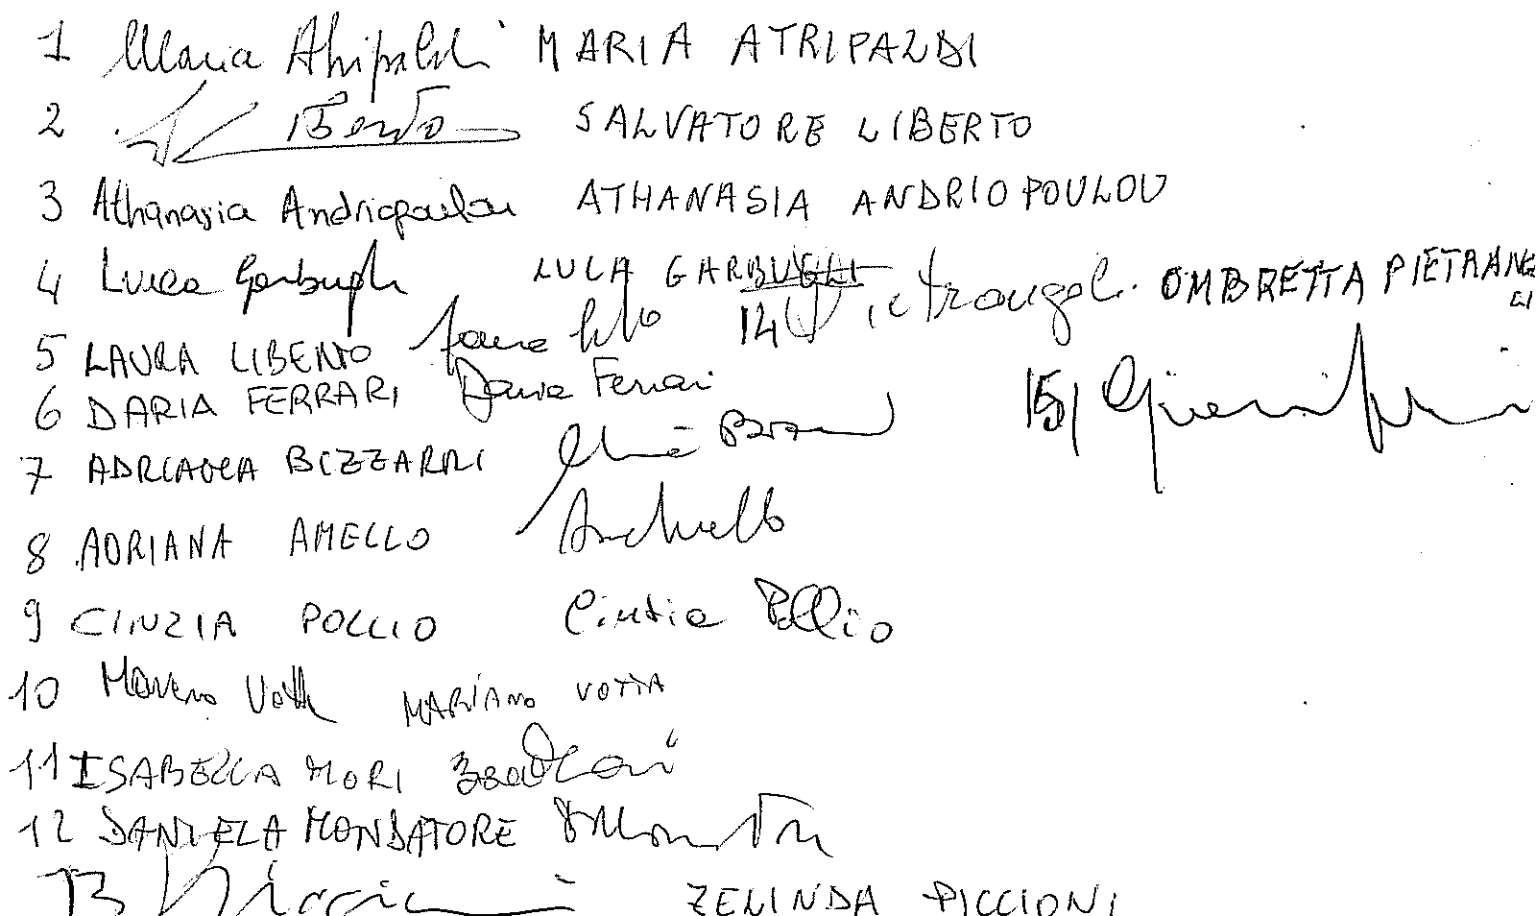 1 Maria Atripaldi MARIA ATRIPALDI
2 SALVATORE LIBERTO
3 Athanasia Andriopoulou ATHANASIA ANDRIOPOULOU
4 Luca Garbugli LUCA GARBUGLI
14 Pietrangeli OMBRETTA PIETRANGELI
5 LAURA LIBERTO
6 DARIA FERRARI Daria Ferrari
7 ADRIANA BIZZARRI
15)
8 ADRIANA AMELLO
9 CINZIA POLLIO Cinzia Pollio
10 Mariano Votta MARIANO VOTTA
11 ISABELLA MORI
12 DANIELA MONDATORE
13 Piccioni ZELINDA PICCIONI